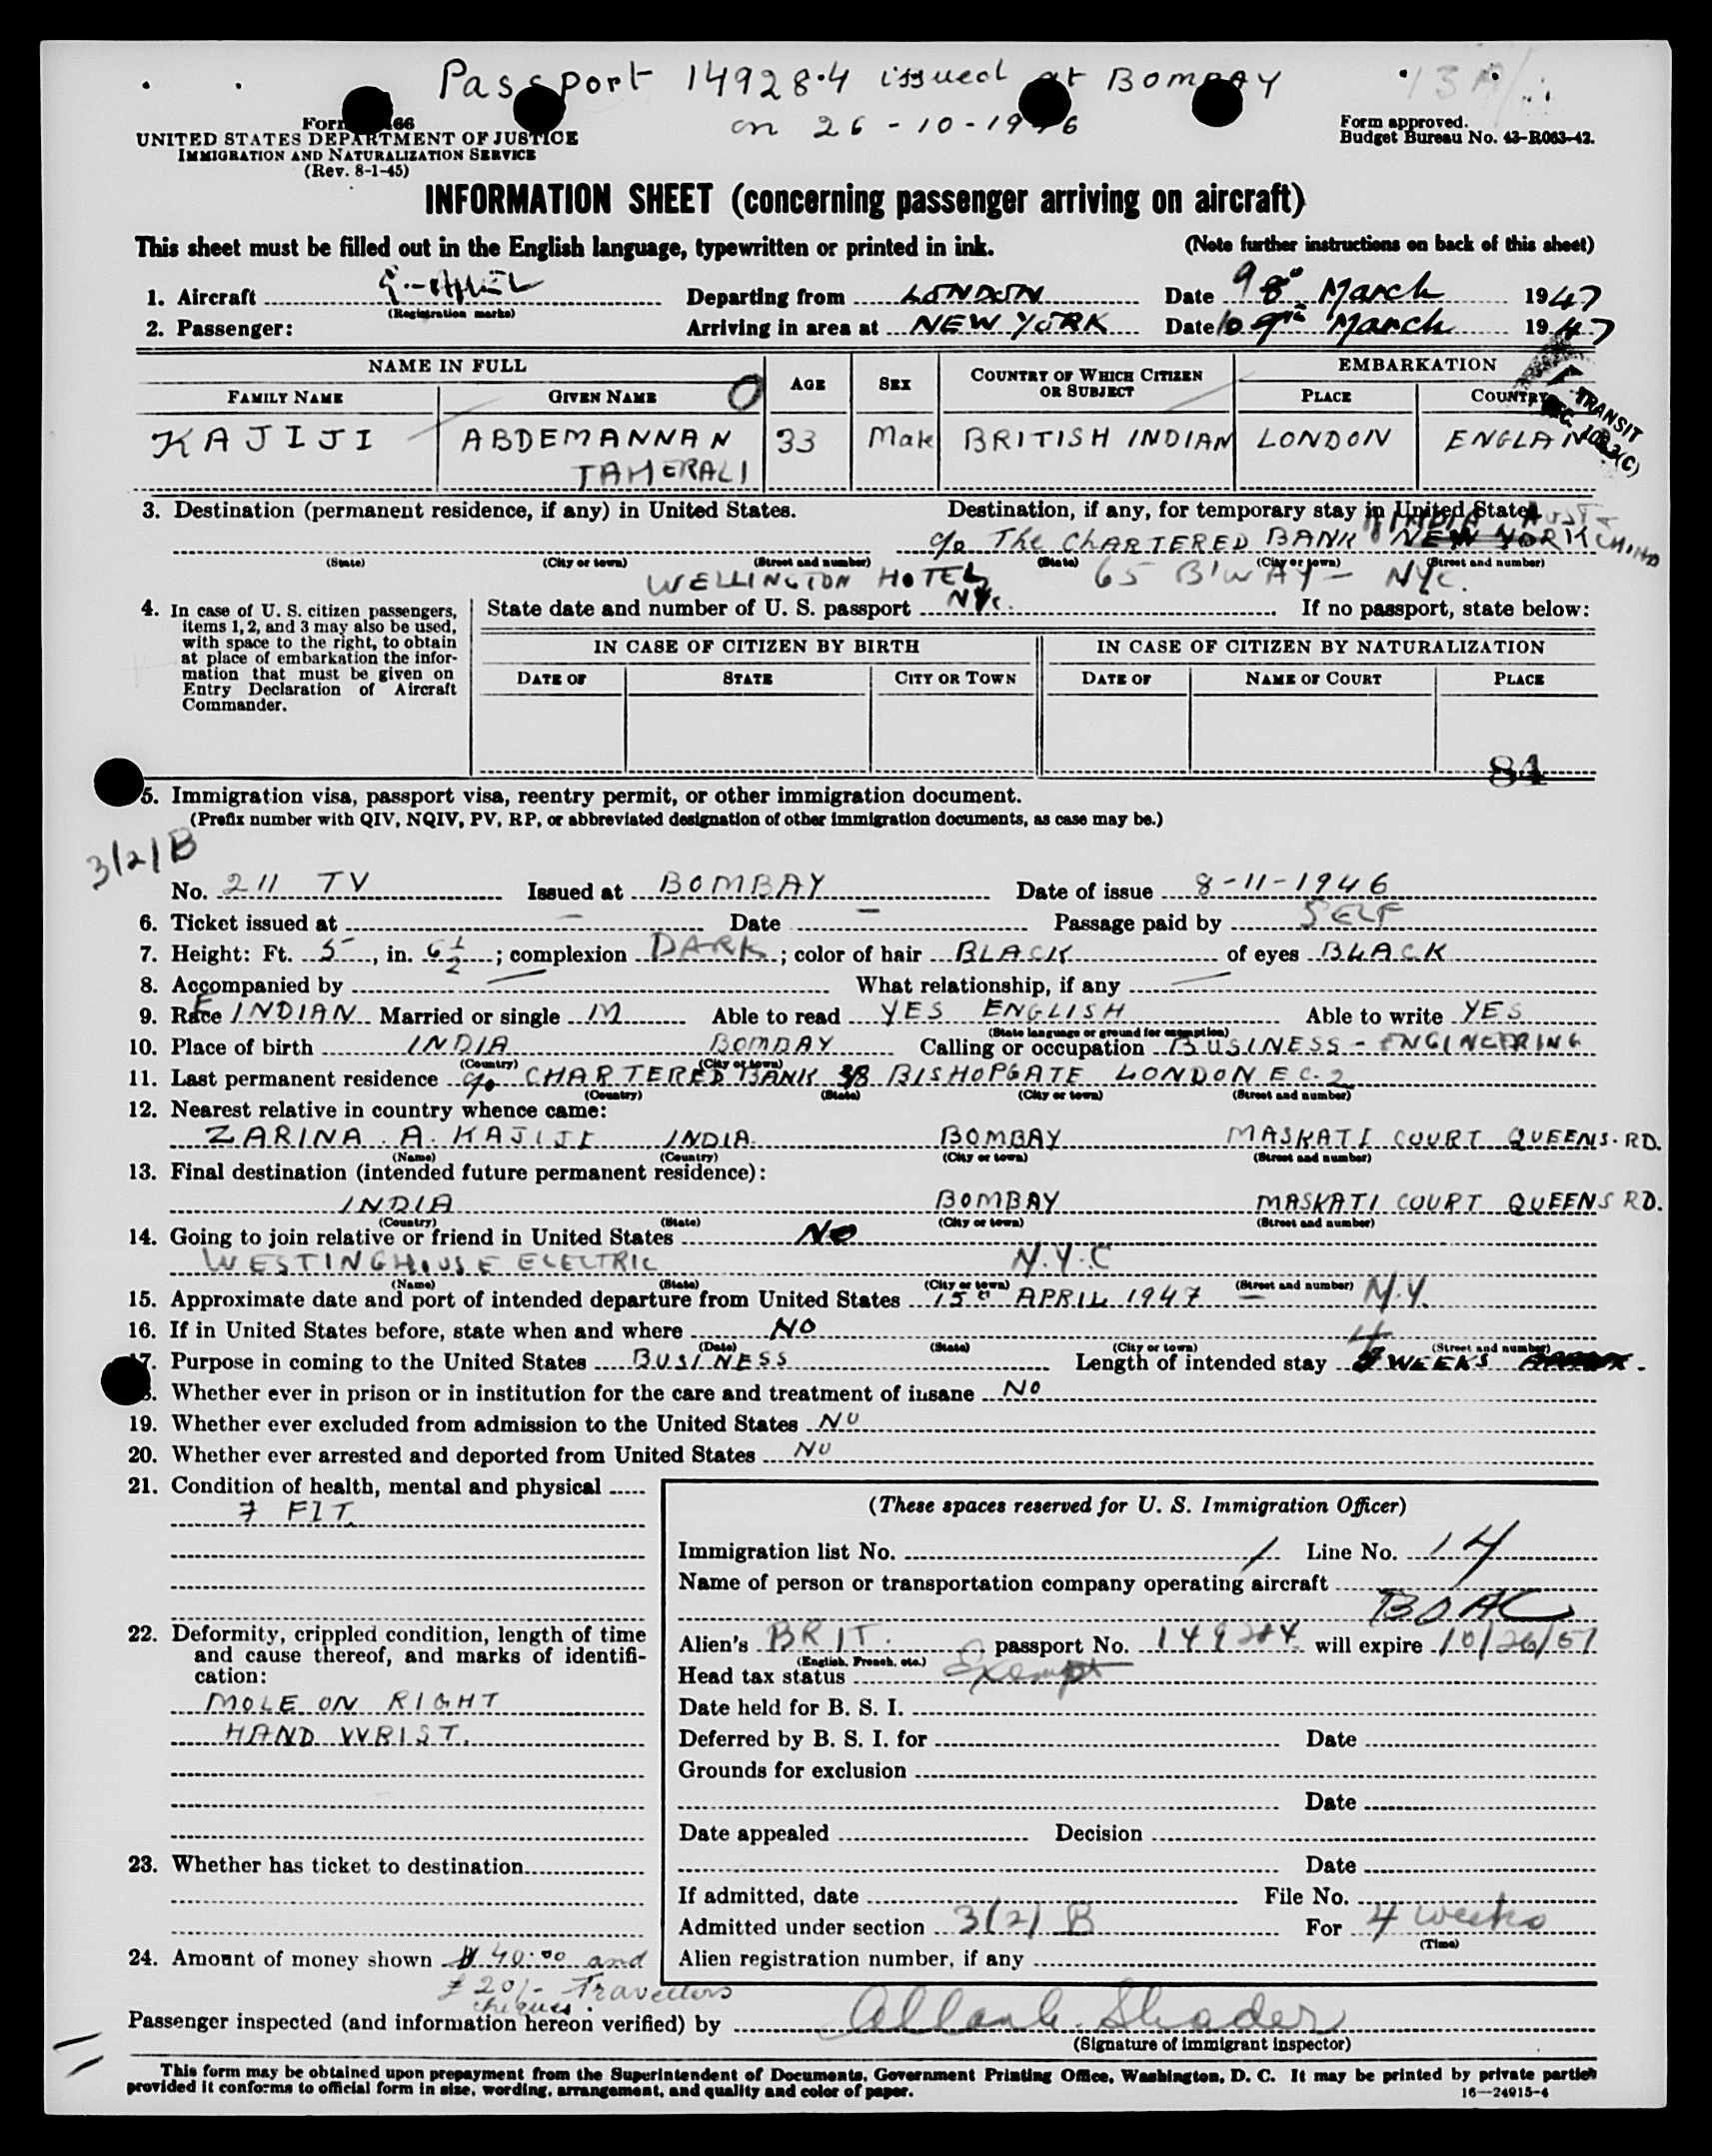 Passport 149284 issued at BOMBAY
on 26-10-1946
Form 66
UNITED STATES DEPARTMENT OF JUSTICE
IMMIGRATION AND NATURALIZATION SERVICE
(Rev. 8-1-45)
Form approved.
Budget Bureau No. 43-R063-42.
INFORMATION SHEET (concerning passenger arriving on aircraft)
This sheet must be filled out in the English language, typewritten or printed in ink. (Note further instructions on back of this sheet)
1. Aircraft Departing from LONDON Date 9 8th March 1947
(Registration marks)
2. Passenger: Arriving in area at NEW YORK Date 10 9th March 1947
NAME IN FULL AGE SEX COUNTRY OF WHICH CITIZEN OR SUBJECT EMBARKATION
FAMILY NAME GIVEN NAME PLACE COUNTRY
TRANSIT
KAJIJI ABDEMANNAN 33 Male BRITISH INDIAN LONDON ENGLAND
TAHERALI
3. Destination (permanent residence, if any) in United States. Destination, if any, for temporary stay in United States.
c/o The CHARTERED BANK OF INDIA AUST & CHINA NEW YORK
(State) (City or town) (Street and number) (State) (City or town) (Street and number)
WELLINGTON HOTEL 65 B'WAY - NYC.
NYC.
4. In case of U. S. citizen passengers, items 1, 2, and 3 may also be used, with space to the right, to obtain at place of embarkation the information that must be given on Entry Declaration of Aircraft Commander.
State date and number of U. S. passport If no passport, state below:
IN CASE OF CITIZEN BY BIRTH IN CASE OF CITIZEN BY NATURALIZATION
DATE OF STATE CITY OR TOWN DATE OF NAME OF COURT PLACE
84
5. Immigration visa, passport visa, reentry permit, or other immigration document.
(Prefix number with QIV, NQIV, PV, RP, or abbreviated designation of other immigration documents, as case may be.)
3/2/B
No. 211 TV Issued at BOMBAY Date of issue 8-11-1946
6. Ticket issued at — Date — Passage paid by SELF
7. Height: Ft. 5, in. 6 1/2; complexion DARK; color of hair BLACK of eyes BLACK
8. Accompanied by — What relationship, if any —
9. Race E INDIAN Married or single M Able to read YES ENGLISH Able to write YES
(State language or ground for exemption)
10. Place of birth INDIA BOMBAY Calling or occupation BUSINESS - ENGINEERING
(Country) (City or town)
11. Last permanent residence c/o CHARTERED BANK 38 BISHOPGATE LONDON E C. 2
(Country) (State) (City or town) (Street and number)
12. Nearest relative in country whence came:
ZARINA. A. KAJIJI INDIA BOMBAY MASKATI COURT QUEENS. RD.
(Name) (Country) (City or town) (Street and number)
13. Final destination (intended future permanent residence):
INDIA BOMBAY MASKATI COURT QUEENS RD.
(Country) (State) (City or town) (Street and number)
14. Going to join relative or friend in United States NO
WESTINGHOUSE ELECTRIC N.Y.C
(Name) (State) (City or town) (Street and number)
15. Approximate date and port of intended departure from United States 15th APRIL 1947 — N.Y.
16. If in United States before, state when and where NO
(Date) (State) (City or town) (Street and number)
17. Purpose in coming to the United States BUSINESS Length of intended stay 4 WEEKS
18. Whether ever in prison or in institution for the care and treatment of insane NO
19. Whether ever excluded from admission to the United States NO
20. Whether ever arrested and deported from United States NO
21. Condition of health, mental and physical
FIT.
22. Deformity, crippled condition, length of time and cause thereof, and marks of identification:
MOLE ON RIGHT
HAND WRIST.
23. Whether has ticket to destination
24. Amount of money shown $ 40.00 and
£ 20/- Travellers
cheques.
(These spaces reserved for U. S. Immigration Officer)
Immigration list No. 1 Line No. 14
Name of person or transportation company operating aircraft
BOAC
Alien's BRIT. passport No. 149284 will expire 10/26/51
(English, French, etc.)
Head tax status Exempt
Date held for B. S. I.
Deferred by B. S. I. for Date
Grounds for exclusion
Date
Date appealed Decision
Date
If admitted, date File No.
Admitted under section 3(2) B For 4 weeks
(Time)
Alien registration number, if any
Passenger inspected (and information hereon verified) by
(Signature of immigrant inspector)
This form may be obtained upon prepayment from the Superintendent of Documents, Government Printing Office, Washington, D. C. It may be printed by private parties
provided it conforms to official form in size, wording, arrangement, and quality and color of paper.
16—24915-4